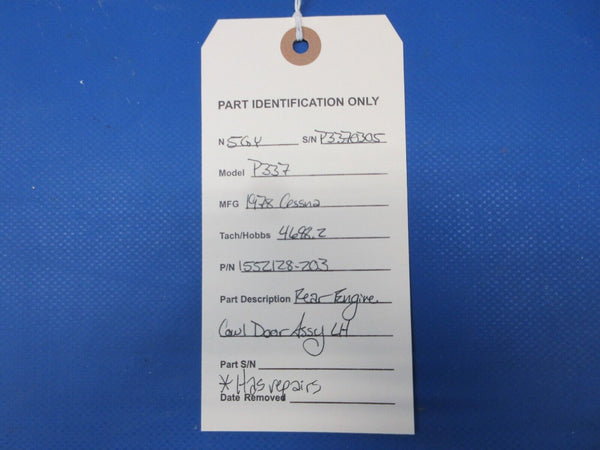 PART IDENTIFICATION ONLY
N 5GY S/N P3370305
Model P337
MFG 1978 Cessna
Tach/Hobbs 4698.2
P/N 1552128-203
Part Description Rear Engine
Cowl Door Assy LH
Part S/N
* Has repairs
Date Removed